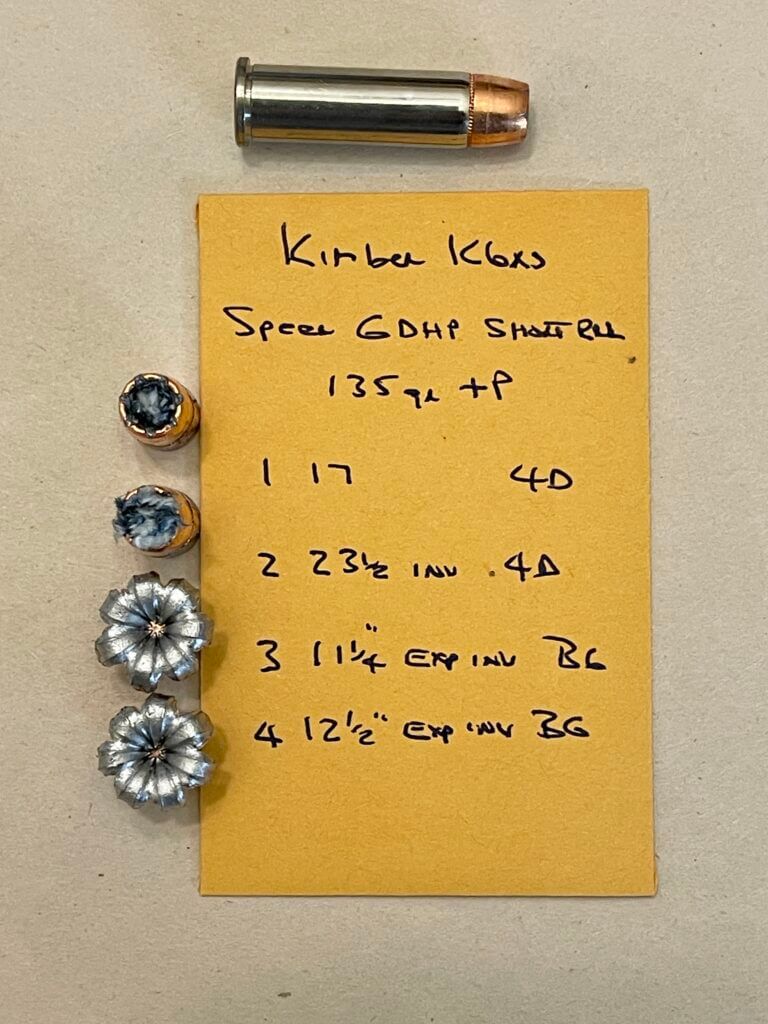 Kimber K6xs
Speer GDHP Short BRL
135 gr +P
1 17 4D
2 23 1/2 INV 4D
3 11 1/4" EXP INV BG
4 12 1/2" EXP INV BG